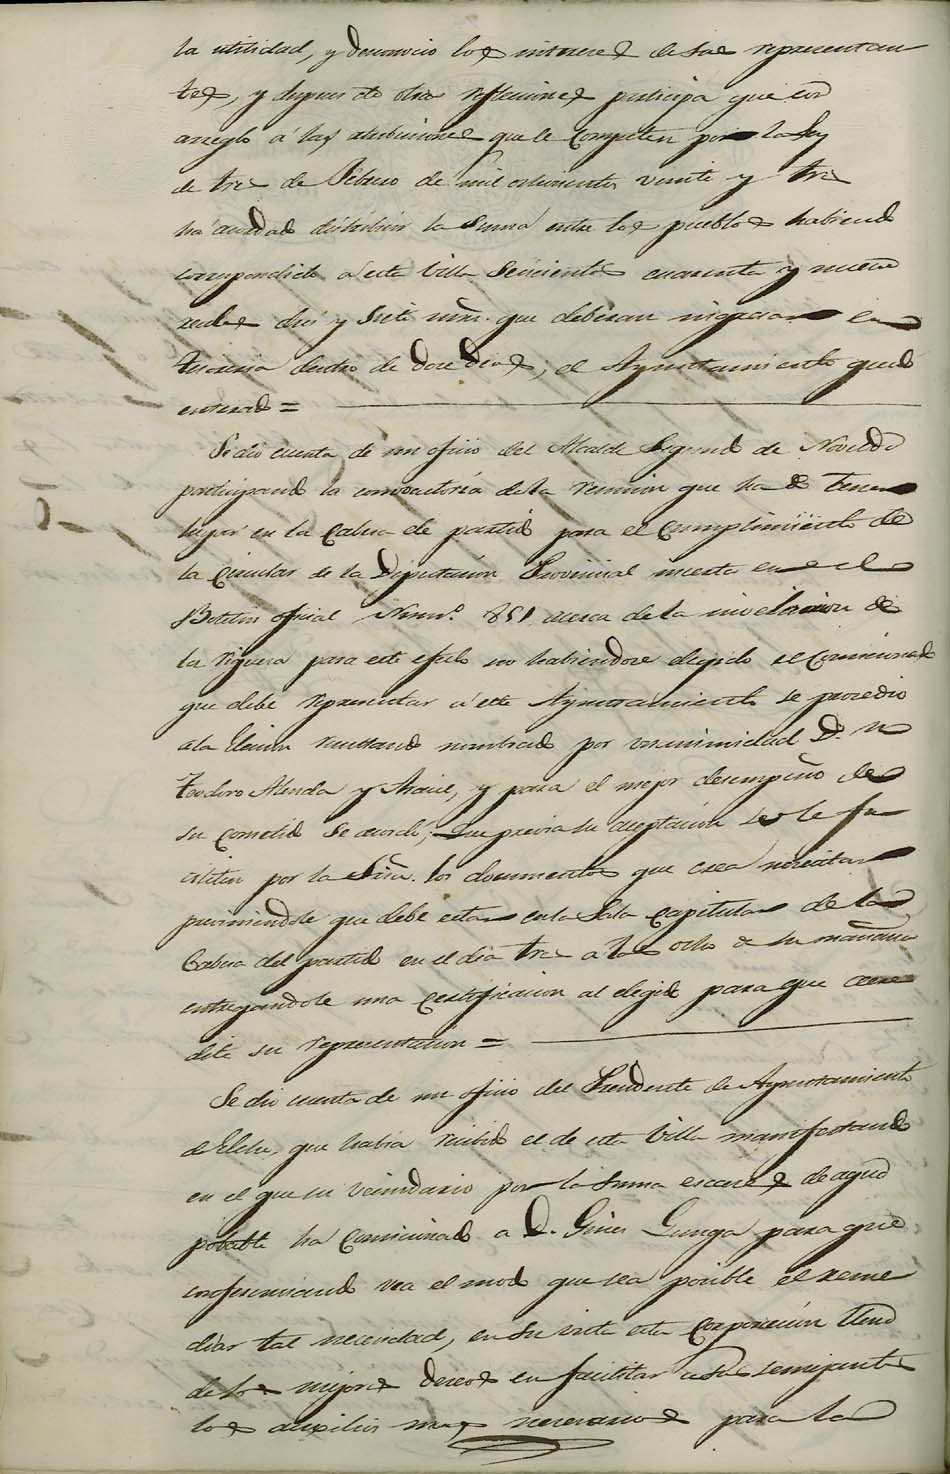 la utilidad, y desconocio los intereses de sus representan
tes, y despues de otras reflecciones participa que con
arreglo á las atribuciones que le competen por la Ley
de tres de Febrero de mil ochocientos veinte y tres
há acordado distribuir la Suma entre los pueblos habiendo
correspondido á esta Villa Seiscientos cuarenta y nueve
reales diez y siete mrs. que deberan ingresar en
Tesoreria dentro de doce dias; el Ayuntamiento quedó
enterado =
Se dió cuenta de un oficio del Alcalde Segundo de Novelda
participando la convocatoria de la reunion que ha de tener
lugar en la Cabeza de partido para el cumplimiento de
la Circular de la Diputación Provincial inserta en el
Boletin oficial Num.º 851 acerca de la nivelacion de
la riqueza para este efecto no habiendose elegido el Comicionado
que debe representar á este Ayuntamiento se procedio
a la Eleccion resultando nombrado por unanimidad D.n
Teodoro Alenda y, y para el mejor desempeño de
su cometido se acordó; Que previa su aceptación se le fa
ciliten por la Sria. los documentos que crea necesitar
previniendole que debe estar en la Sala Capitular de la
Cabeza del partido en el dia tres a las ocho de su mañana
entregandole una certificacion al elegido para que acre
dite su representacion =
Se dió cuenta de un oficio del Presidente de Ayuntamiento
de Elche, que habia recibido el de esta Villa manifestando
en el que su vecindario por la suma escases de agua
potable ha Comicionado a D. Gines para que
conferenciando vea el modo que sea posible el reme
diar tal necesidad, en su vista esta Corporación llena
de los mejores deseos en facilitar a sus semejantes
los auxilios mas necesarios para la